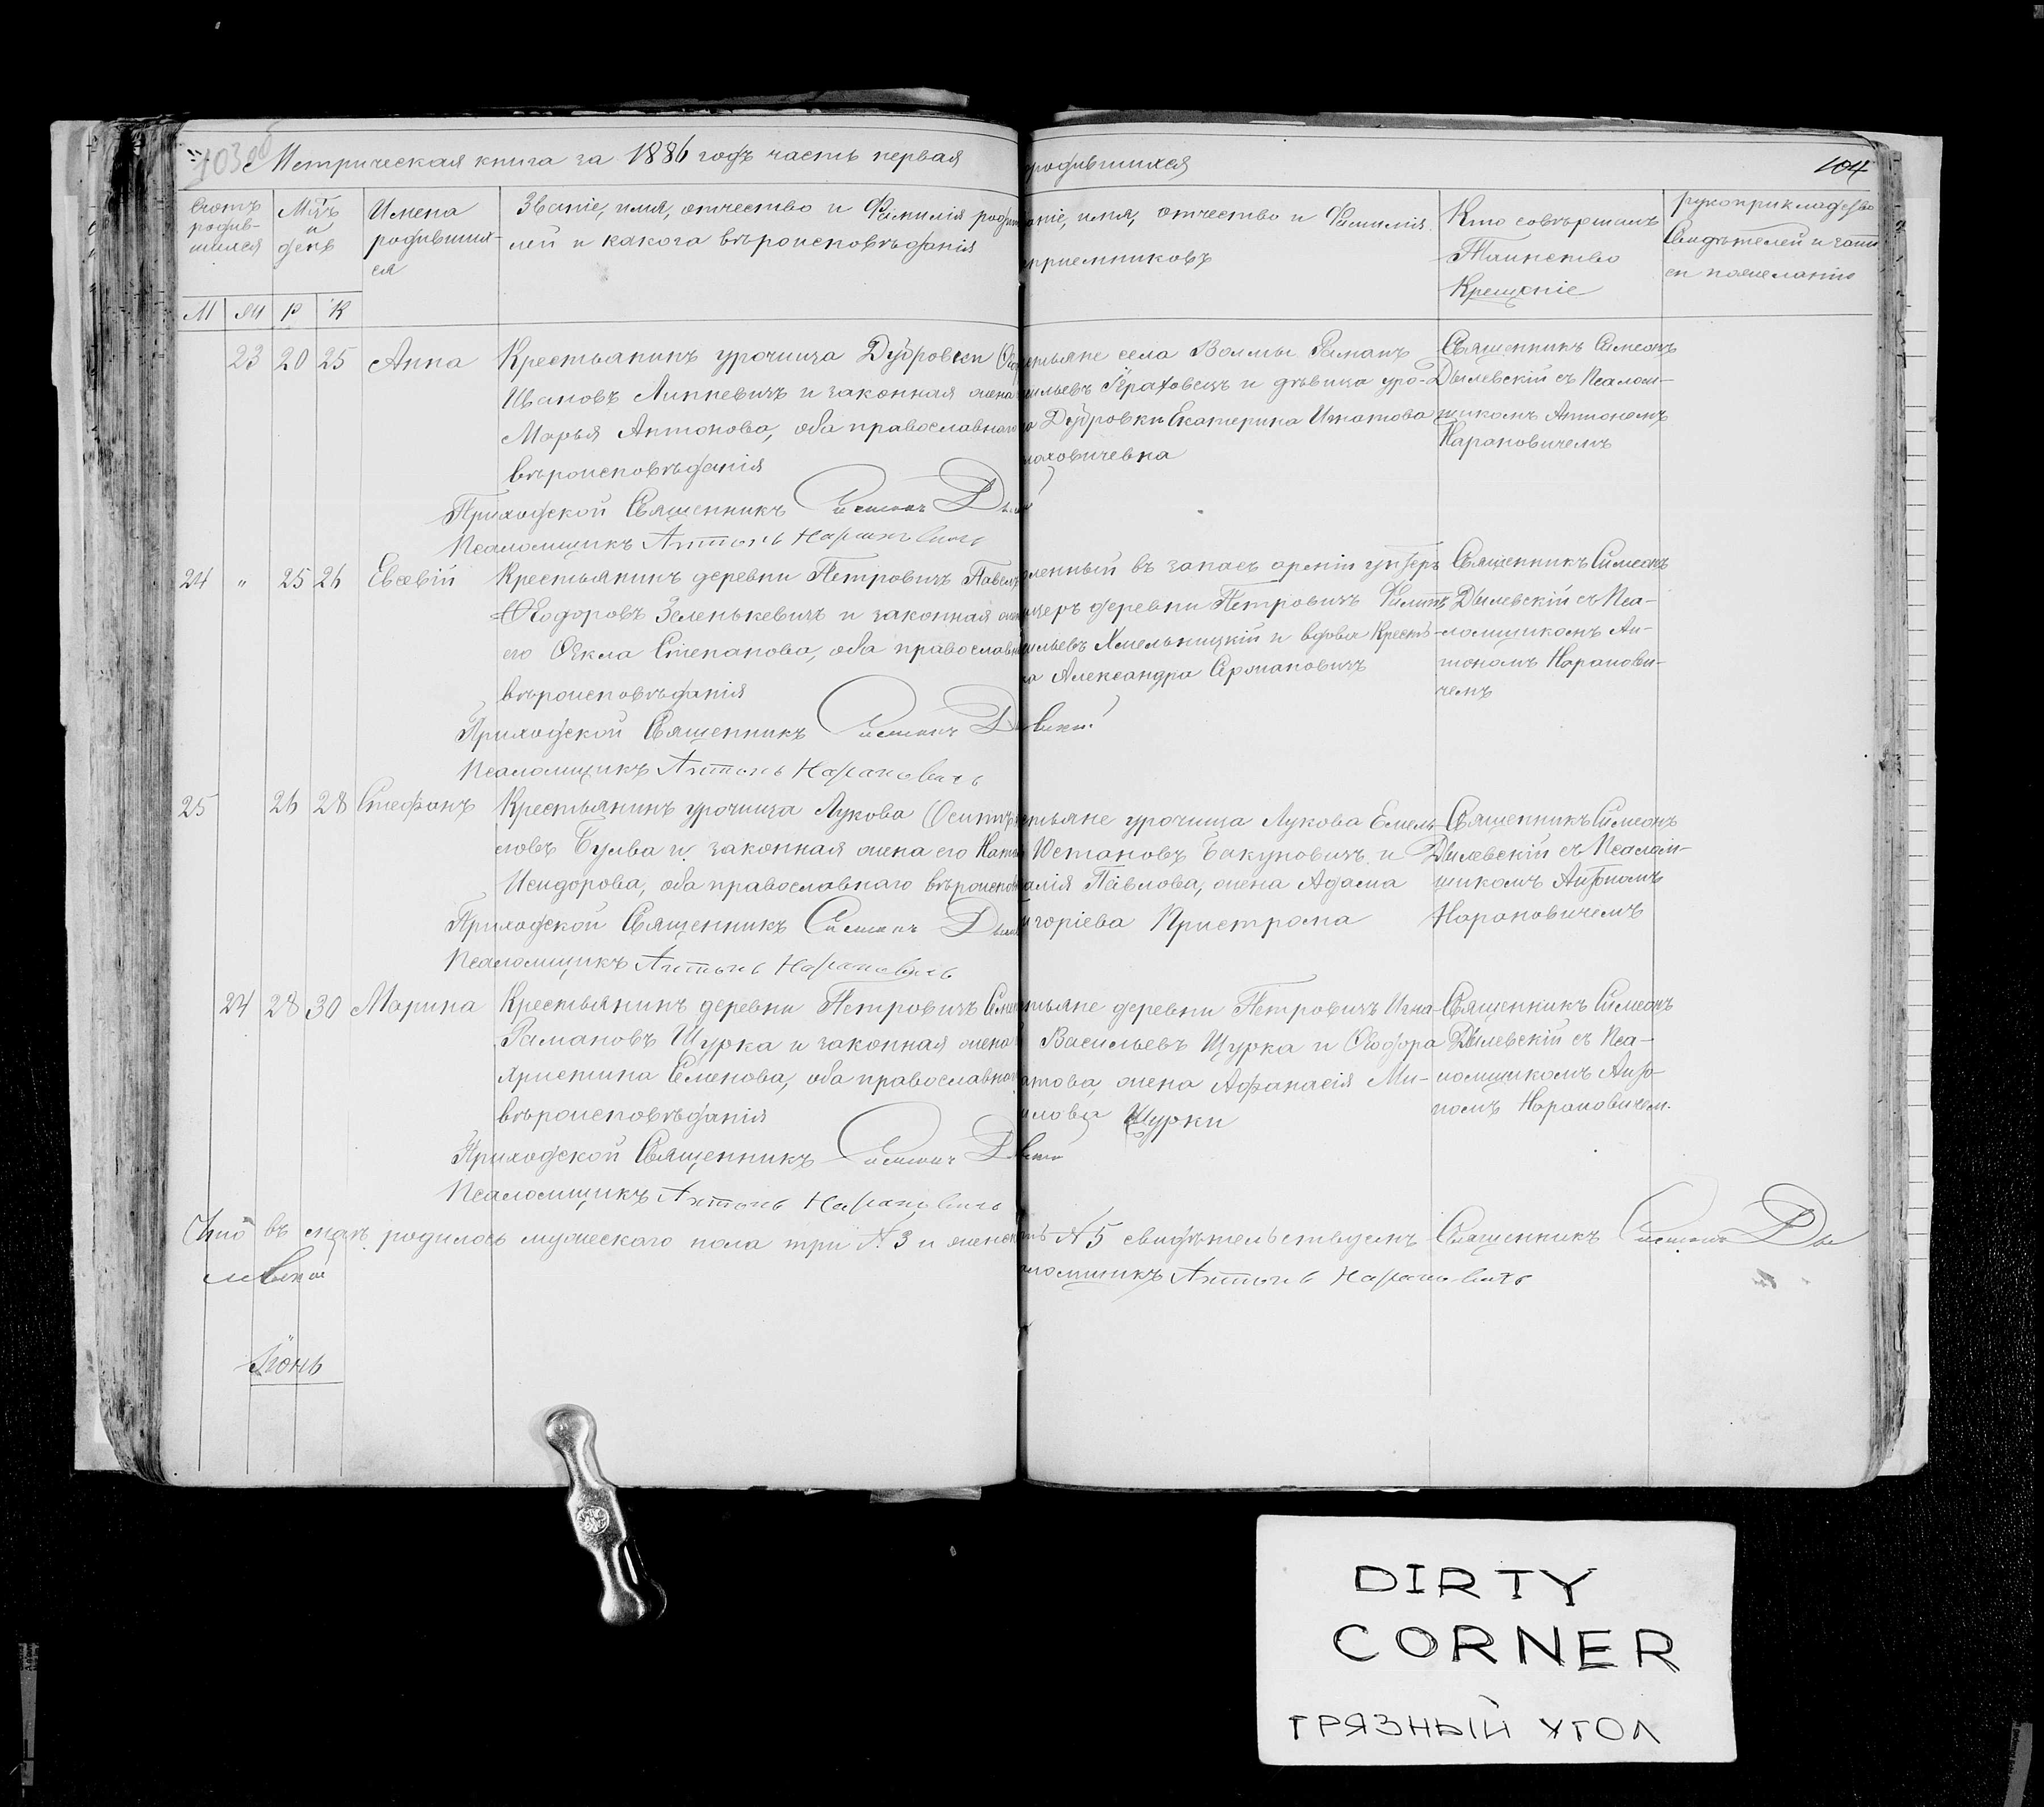 103об Метрическая книга за 1886 годъ часть первая
родившихся
104
Счетъ родив-шихся
Мѣсяцъ и день
Имена родивших-ся
Званіе, имя, отчество и Фамилія родит
лей и какога вѣроисповѣданія
аніе, имя, отчество и Фамилія
пріемниковъ
Кто совѣршалъ
Таинство
Крещеніе
рукоприкладство
Свидѣтелей и запи
си пожеланію
М Ж Р К
23 20 25 Анна Крестьянинъ урочища Дубровки
Ивановъ Липневичъ и законная жена
Марья Антонова, оба православнаго
вѣроисповѣданія
Приходской Священникъ Симеонъ
Псаломщикъ Антонъ Нарановичъ
стьяне села Волмы Раманъ
сильевъ Гераховецъ и дѣвица уро-
Дубровки Екатерина Игнатова
лаховичевна
Священникъ Симеонъ
Дылевскій съ Псалом-
щикомъ Антономъ
Нарановичемъ
24 " 25 26 Евсевій Крестьянинъ деревни Петровичъ Павелъ
Ѳеодоровъ Зеленькевичъ и законная жен
его Ѳекла Степанова, оба православн
вѣроисповѣданія
Приходской Священникъ Симеонъ
Псаломщикъ Антонъ Нарановичъ
ленный въ запасъ арміи унтеръ
ицеръ деревни Петровичъ Филиппъ
сильевъ Хмельницкій и вдова Кресть-
ка Александра Сермановичъ
Священникъ Симеонъ
Дылевскій съ Пса-
ломщикомъ Ан-
тономъ Наранови-
чемъ
25 26 28 Стефанъ Крестьянинъ урочища Лукова Осипъ
словъ Булва и законная жена его Ната
Исидорова, оба православнаго вѣроисповѣ
Приходской Священникъ Симеонъ
Псаломщикъ Антонъ Нарановичъ
стьяне урочища Лукова Емель
Юстановъ Бакуновичъ и
алія Павлова, жена Адама
игоріева Пристрома
Священникъ Симеонъ
Дылевскій съ Псалом-
щикомъ Антономъ
Нарановичемъ
24 28 30 Марина Крестьянинъ деревни Петровичъ Семе
Рамановъ Щурка и законная жена
Христина Семенова, оба православнаго
вѣроисповѣданія
Приходской Священникъ Симеонъ
Псаломщикъ Антонъ Нарановичъ
тьяне деревни Петровичъ Игна-
Васильевъ Щурка и Ѳеодора
атова, жена Афанасія Ми-
илова Щурки
Священникъ Симеонъ
Дылевскій съ Пса-
ломщикомъ Анто-
номъ Нарановичем.
Что въ маѣ родилось мужескаго пола три № 3 и женск № 5 свидѣтельствуемъ Священникъ Симеонъ Ды
левскій
ломщикъ Антонъ Нарановичъ
Іюнь
DIRTY
CORNER
ГРЯЗНЫЙ УГОЛ